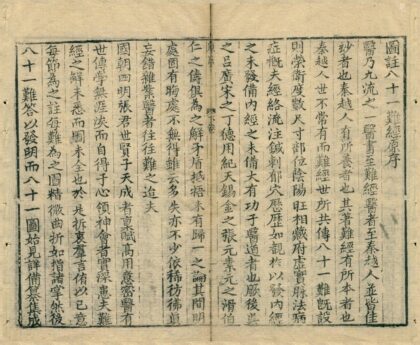 圖註八十一難經原序
醫乃九流之一醫書至難經醫者至秦越人並皆佳
妙者也秦越人有所養者也其著難經有所本者也
秦越人世不常有而難經世所共傳八十一難既設
則榮衛度數尺寸部位陰陽旺相藏府虛實脉法病
症概夫經絡流注鍼刺俞穴歷歷如覩枚以發內經
之未發備內經之未備大有功于醫道者也厥後吳
之呂廣宋之丁德用紀天錫金之張元素元之滑伯
仁之儔俱為之解矛盾抵捂未有歸一之論其間明
處固有晦處不無得雖云多失亦不少依稀彷彿顛
妄錯雜業醫者往往難之迨夫
國朝四明張君世賢字天成者稟賦高用意密醫有
世傳學無涯涘而自得于心領神會者實深患夫難
經之解未悉而圖未全也於是折衷群言侑以己意
每節為之註每難為之圖精微曲折如指諸掌然後
八十一難答以發明而八十一圖始見詳備集成